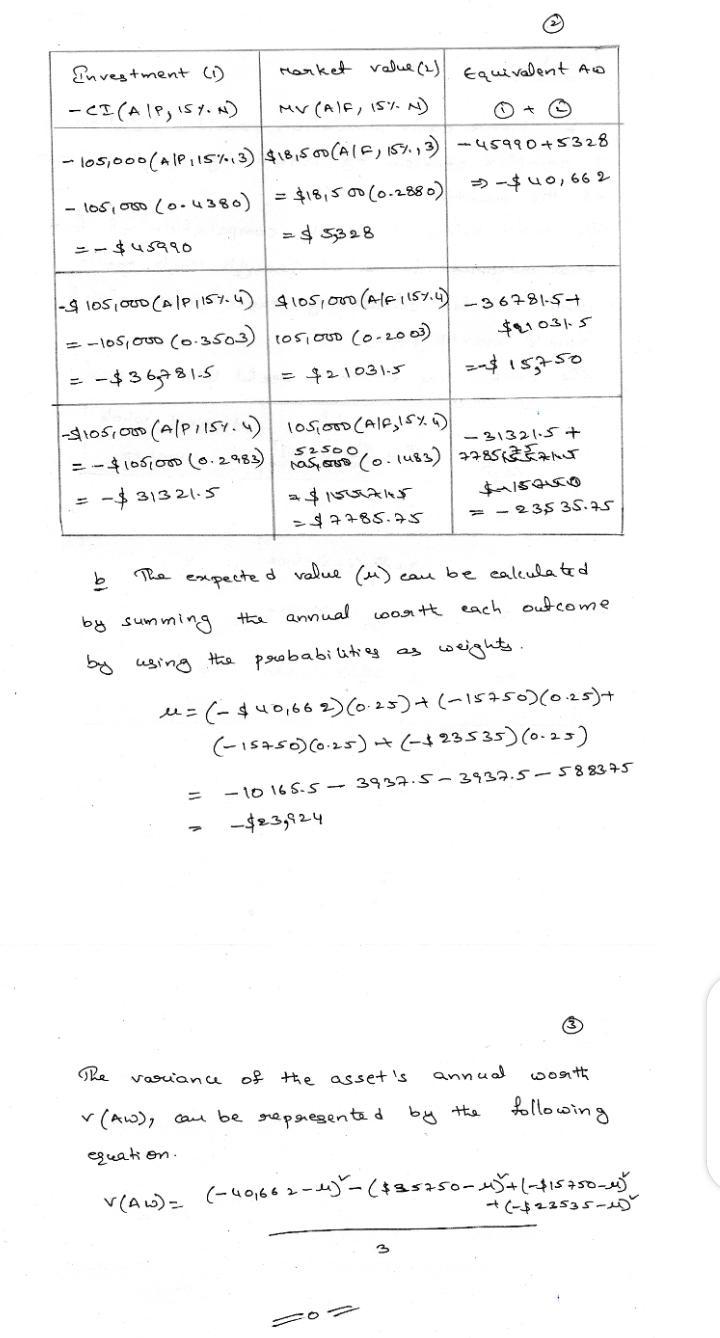 ②
Investment (1)
Market value (2)
Equivalent AW
-CI (A|P, 15%. N)
MV (A|F, 15%. N)
① + ②
- 105,000 (A|P, 15%, 3)
- 105,000 (0.4380)
= - $45990
$18,500 (A|F, 15%, 3)
= $18,500 (0.2880)
= $ 5,328
-45990+5328
⇒ -$40,662
-$105,000 (A|P, 15%. 4)
= -105,000 (0.3503)
= -$36,781.5
$105,000 (A|F, 15%. 4)
105,000 (0.2003)
= $21031.5
-36781.5+
$21031.5
=-$ 15,750
-$105,000 (A|P, 15%. 4)
= -$105,000 (0.2983)
= -$ 31321.5
105,000 (A|F, 15%. 4)
52500
(0.1483)
= $7785.75
-31321.5 +
= -23535.75
b The expected value (μ) can be calculated
by summing the annual worth each outcome
by using the probabilities as weights.
μ = (-$40,662)(0.25)+(-15750)(0.25)+
(-15750)(0.25)+(-$23535)(0.25)
= -10165.5 - 3937.5 - 3937.5 - 588375
= -$23,924
③
The variance of the asset's annual worth
V(AW), can be represented by the following
equation.
V(AW) = (-40,662-μ)² - ($35750-μ)² + (-$15750-μ)²
+ (-$23535-μ)²
3
=0=